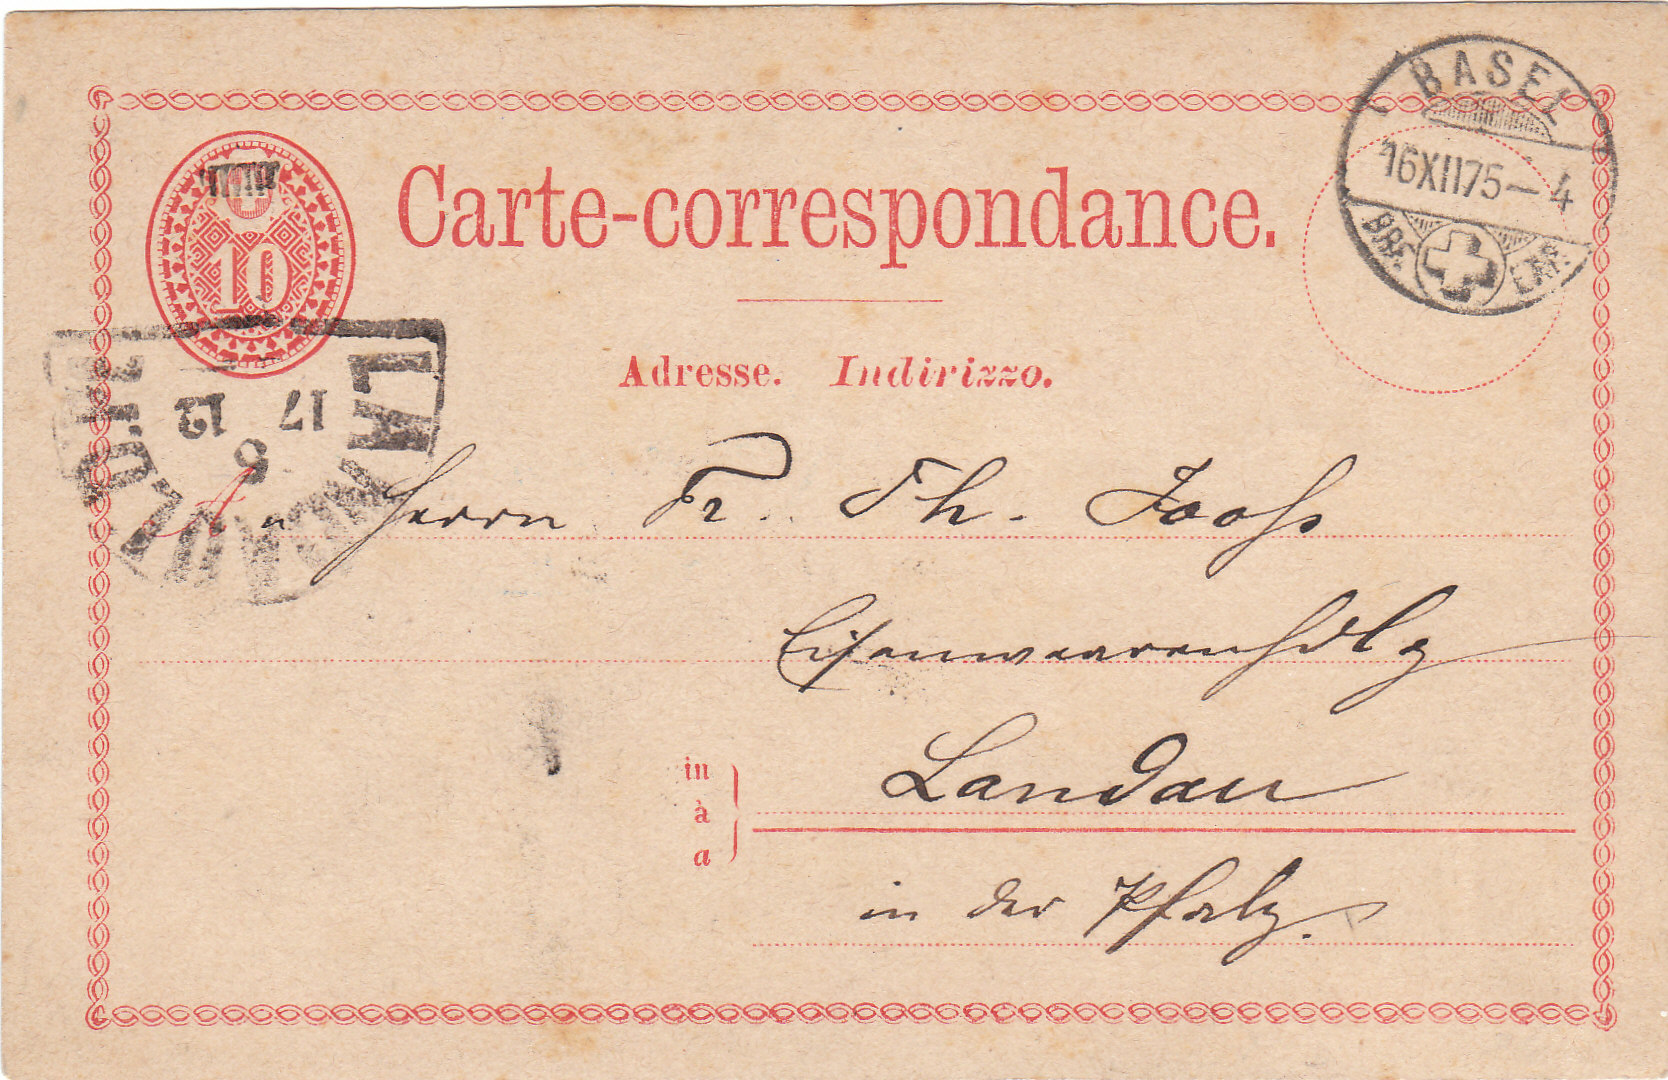 BASEL
16XII75-4
BRF. EXP.
10
Carte-correspondance.
Adresse. Indirizzo.
LANDAU
17 12
6
An Herrn Fr. Th. Joohs
Eisenwaarenhdlg
in
à
a
Landau
in der Pfalz.